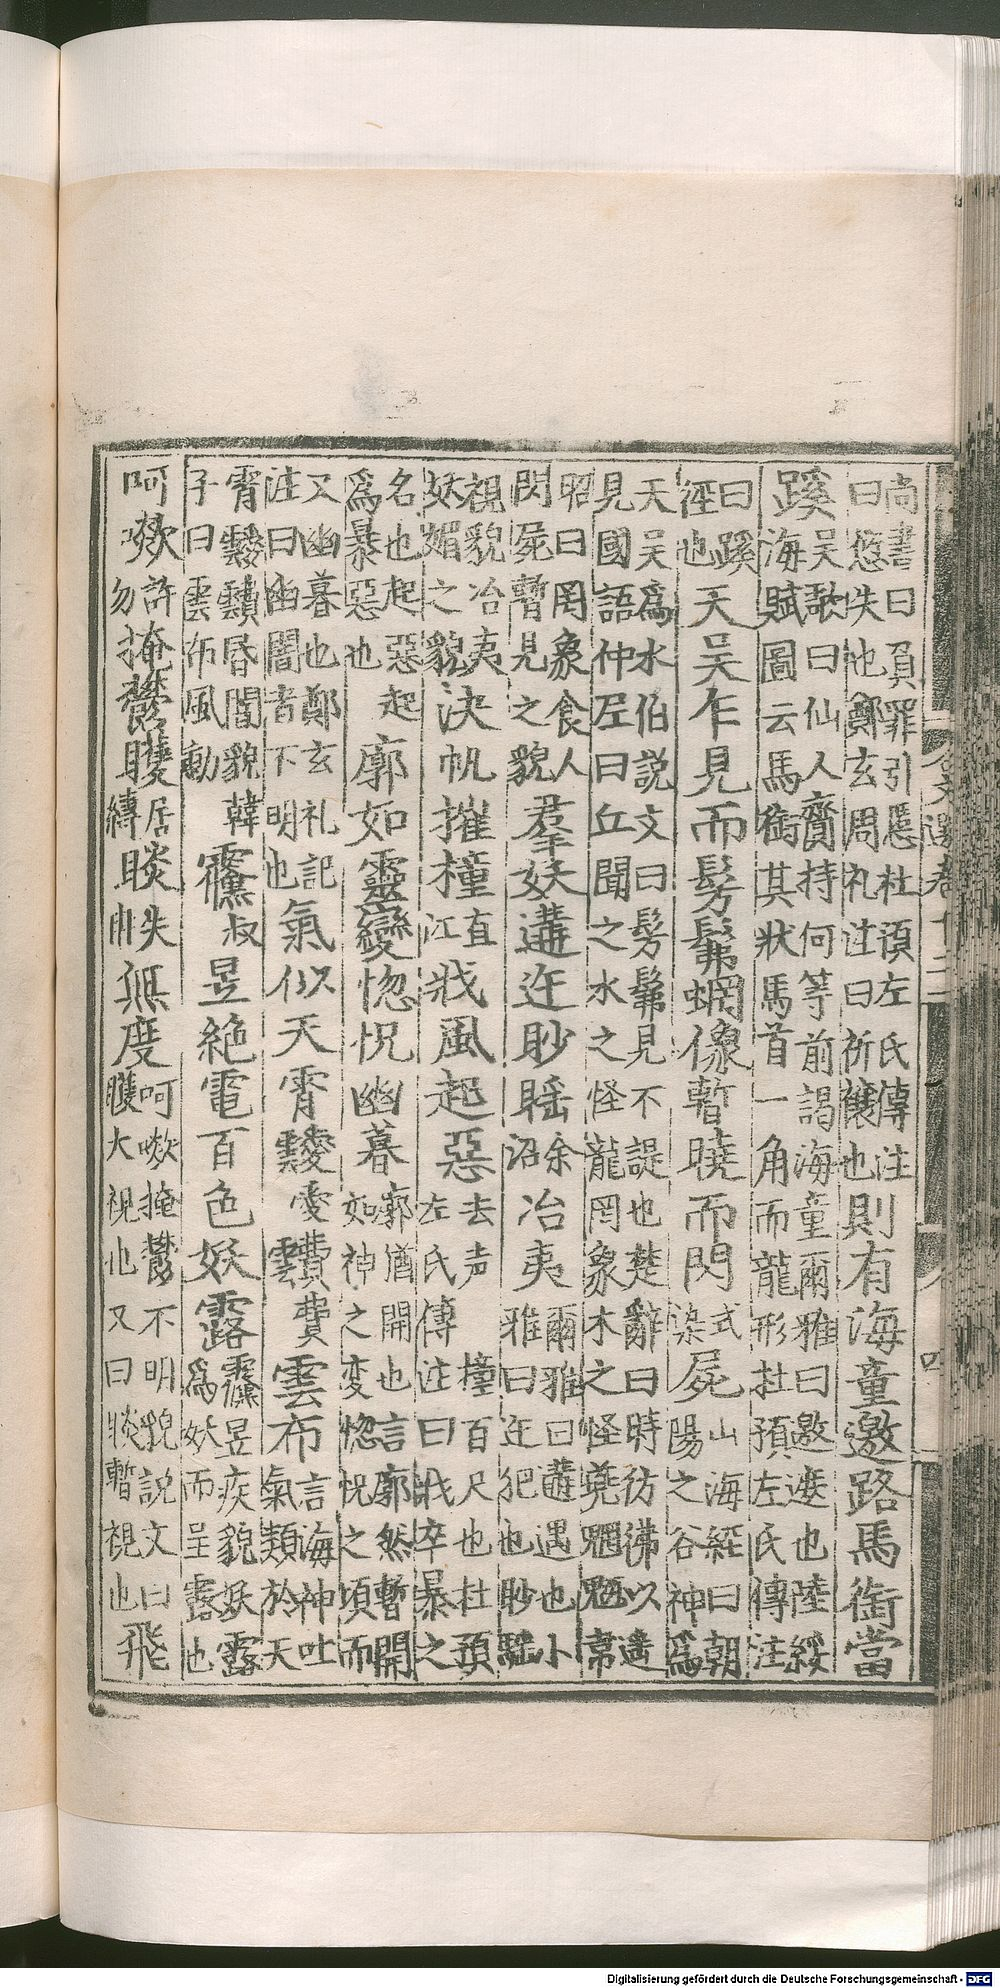 文選卷十二
四
尚書曰負罪引慝杜預左氏傳注
曰悠失也鄭玄周礼注曰祈禳也
則有海童邀路馬銜當
蹊
吳歌曰仙人齎持何等前謁海童爾雅曰邀遮也陸綏
海賦圖云馬銜其狀馬首一角而龍形杜預左氏傳注
曰蹊
徑也
天吳乍見而髣髴蝄像暫曉而閃式染屍
山海經曰朝
陽之谷神爲
天吳爲水伯説文曰髣髴見不諟也楚辭曰時彷彿以遥
見國語仲尼曰丘聞之水之怪龍罔象木之怪夔魍魎常
昭曰罔象食人
閃屍暫見之貌
羣妖遘迕眇䁘余沼冶夷
爾雅曰遘遇也小
雅曰迕犯也眇䁘
視貌冶夷
妖媚之貌
決帆摧橦直江戕風起惡去声
橦百尺也杜預
左氏傳注曰戕卒暴之
名也起惡起
爲暴惡也
廓如靈變惚怳幽暮
廓猶開也言廓然暫開
如神之変惚怳之頃而
又幽暮也鄭玄礼記
注曰幽闇者下明也
氣似天霄靉愛靅費雲布
言海神吐
氣類於天
霄靉靅昏闇貌韓
子曰雲布風動
䨹叔昱絶電百色妖露
䨹昱疾貌妖露
爲妖而呈露也
呵㰲許勿掩鬱矆居縛睒失冉無度
呵㰲掩鬱不明貌説文曰
矆大視也又曰睒暫視也
飛
Digitalisierung gefördert durch die Deutsche Forschungsgemeinschaft - DFG